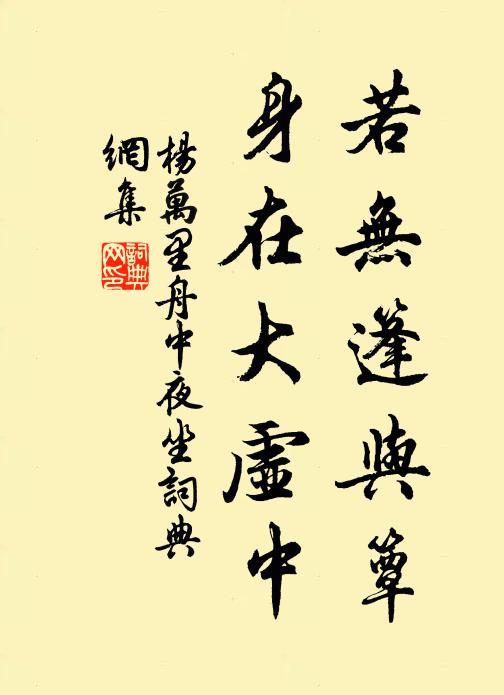 若無篷與簟
身在大虛中
楊萬里舟中夜坐詞典
網集
詞典網印